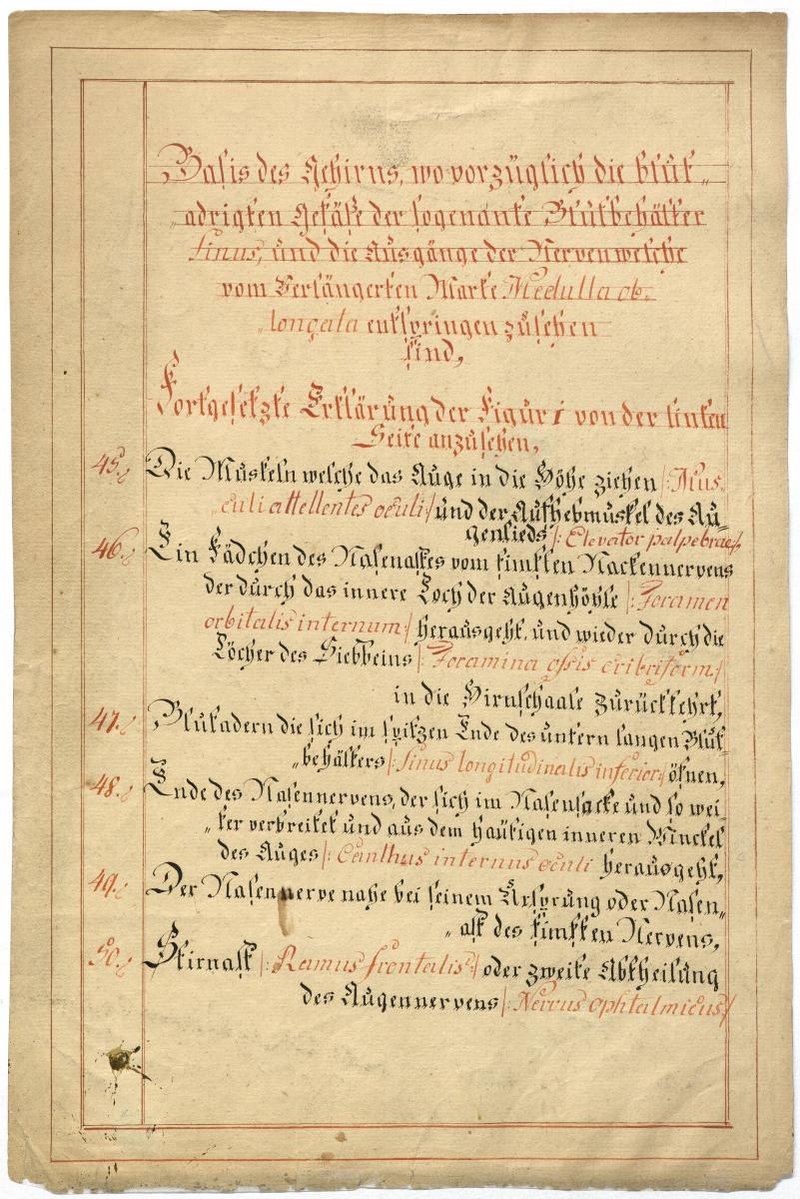 Basis des Gehirns, wo vorzüglich die blut„
„adrigten Gefäße der sogenante Blutbehälter
sinus, und die Ausgänge der Nerven welche
vom Verlängerten Marke Medulla ob„
„longata entspringen zu sehen
sind,
Fortgesetzte Erklärung der Figur 1 von der linken
Seite anzusehen,
45. Die Muskeln welche das Auge in die Höhe ziehen /: Mus„
„culi attellentes oculi / und der Aufhebmuskel des Au„
genlieds /: Elevator palpebrae /
46. Ein Fädchen des Nasenastes vom fünften Nackennervens
der durch das innere Loch der Augenhöhle /: Foramen
orbitalis internum :/ herausgeht, und wieder durch die
Löcher des Siebbeins /: Foramina ossis cribriform. /
in die Hirnschaale zurückkehrt,
47. Blutadern die sich im spitzen Ende des untern langen Blut„
„behälters /: sinus longitudinalis inferior :/ öfnen,
48. Ende des Nasennervens, der sich im Nasensacke und so wei„
„ter verbreitet und aus dem häutigen inneren Winckel
des Auges /: Canthus internus oculi herausgeht,
49. Der Nasennerve nahe bei seinem Ursprung oder Nasen„
„ast des fünften Nervens,
50. Stirnast /: Ramus frontalis :/ oder zweite Abtheilung
des Augennervens /: Nervus ophtalmicus /